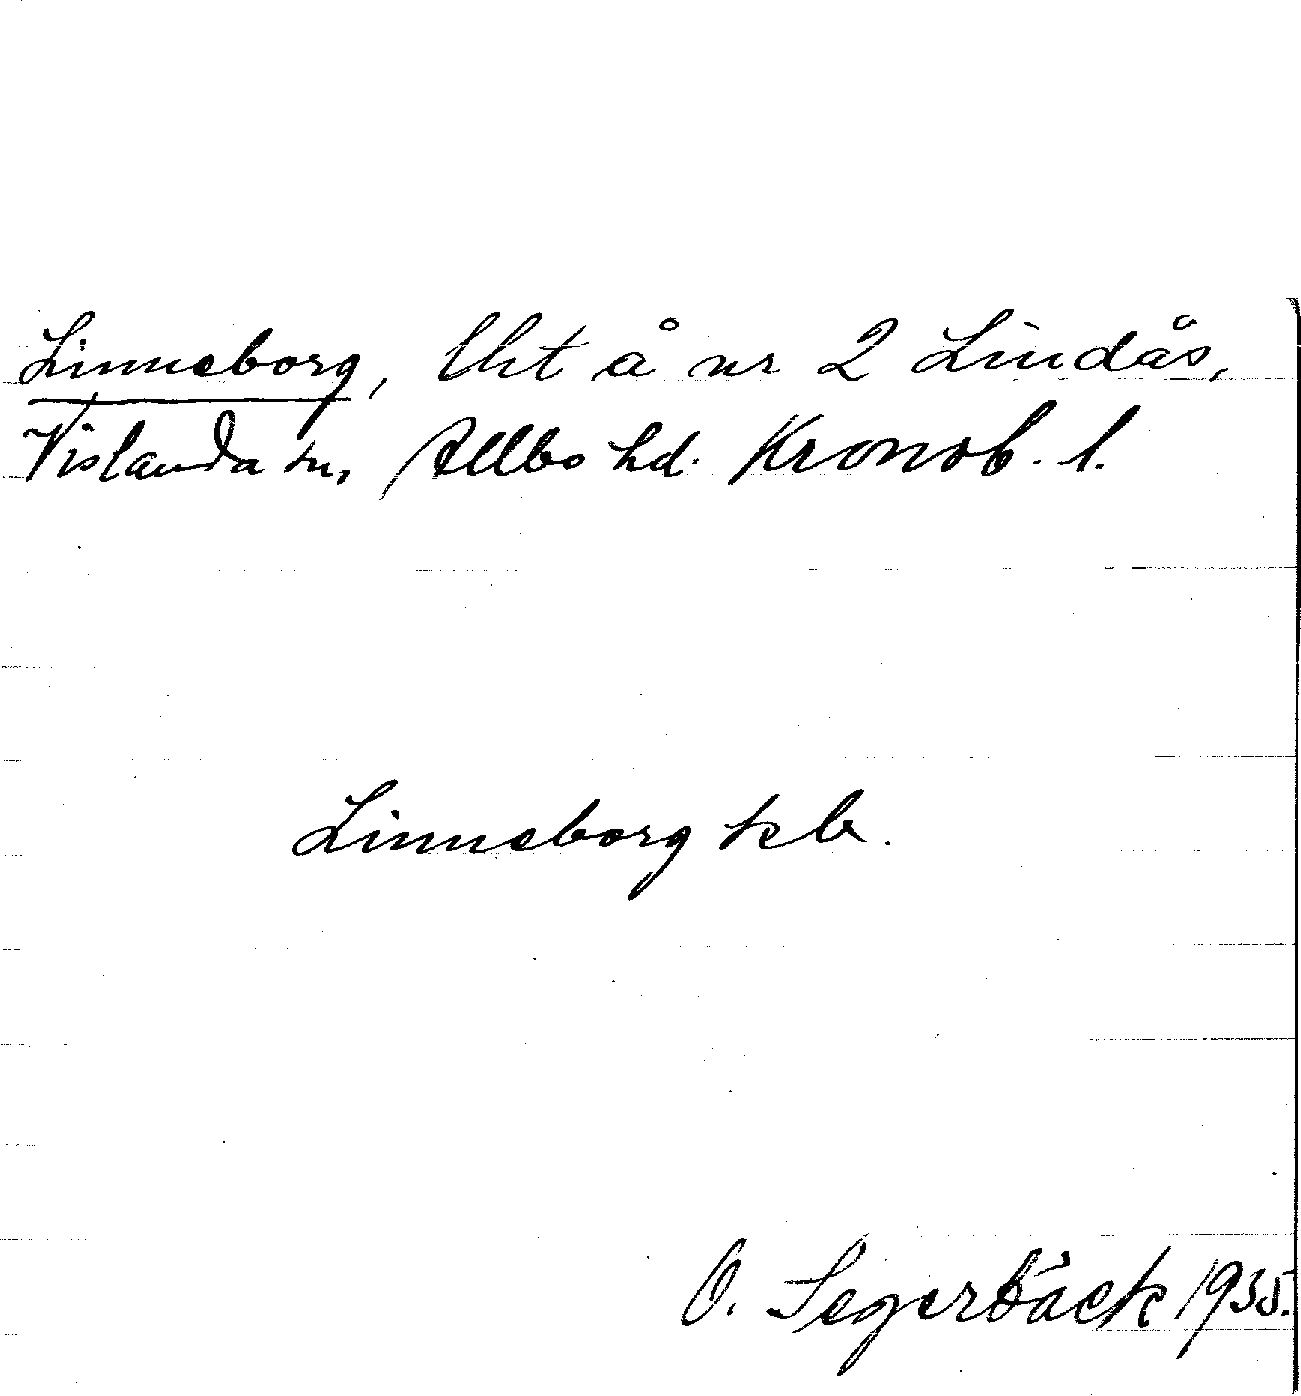 Linneborg, Uht å nr 2 Lindås,
Vislanda sn, Allbo hd. Kronob. l.
Linneborg kb.
O. Segerbäck 1935.